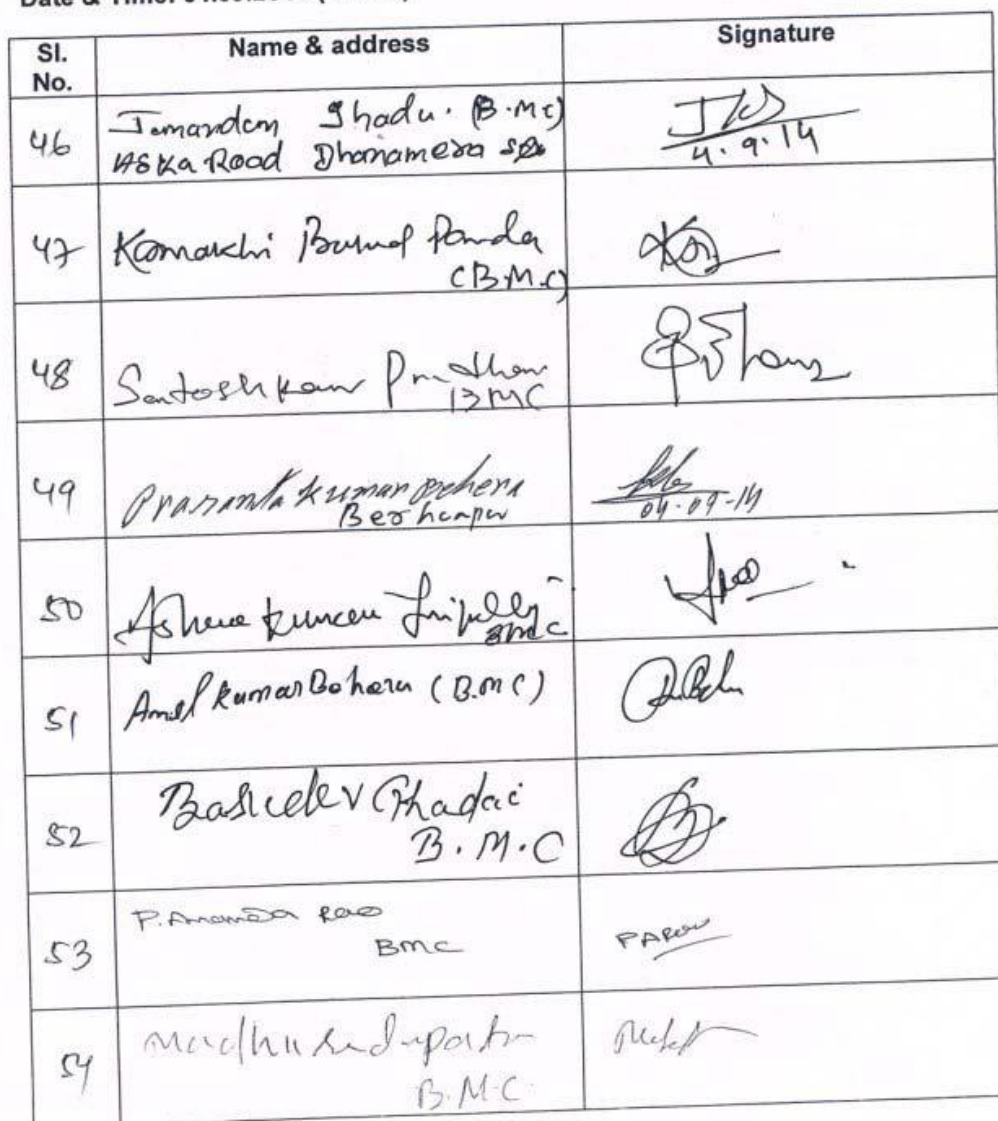 Date & Time:
Sl. No.
Name & address
Signature
46
Jamandon Shadu. (B.Mc)
ASKa Road Dhanamera
4.9.14
47
Kamakhi Panda
(B.M.C)
48
Santosh Pradhan
BMC
49
Prasanta Kumar Behera
Berhampur
04-09-14
50
Kumar Tripathy
BMC
51
Amul Kumar Behera (B.M C)
52
Basudev Ghadai
B.M.C
53
P. Ananda Rao
BMC
PARao
54
Madhusudan patra
B.M.C